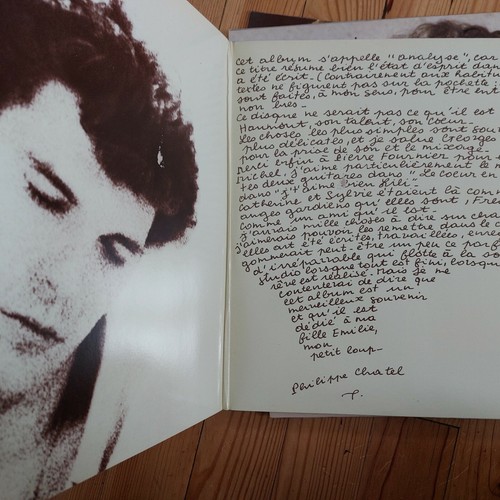 cet album s'appelle "analyse", car
ce titre résume bien l'état d'esprit dan
a été écrit. (Contrairement aux habitu
textes ne figurent pas sur la pochette
sont faites, à mon sens, pour être ent
non lues.
Ce disque ne serait pas ce qu'il est
Haumont, son talent, son cœur.
Les choses les plus simples sont sou
plus délicates, et je salue Georges
pour la prise de son et le mixage.
Merci enfin à Pierre Fournier pour
Michel, j'aime particulièrement le m
tes deux guitares dans "Le cœur en
dans "j't'aime bien Lili".
Catherine et Sylvie étaient là com
anges gardiens qu'elles sont, Fred
comme un ami qu'il est.
j'aurais mille choses à dire sur cha
j'aimerais pouvoir les remettre dans le c
elles ont été écrites, travaillées, enre
gommerait peut-être un peu ce parf
d'irréparable qui flotte à la so
studio lorsque tout est fini, lorsque
rêve est réalisé. Mais je me
contenterai de dire que
cet album est un
merveilleux souvenir
et qu'il est
dédié à ma
fille Emilie,
mon
petit loup_
Philippe Chatel